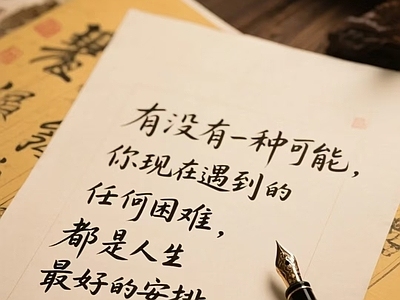 有没有一种可能，
你现在遇到的
任何困难，
都是人生
最好的安排